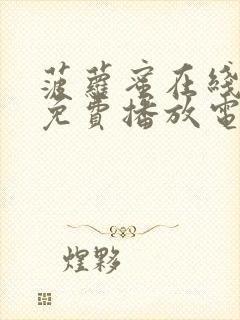 菠蘿蜜在綫
免費播放電
煌夥